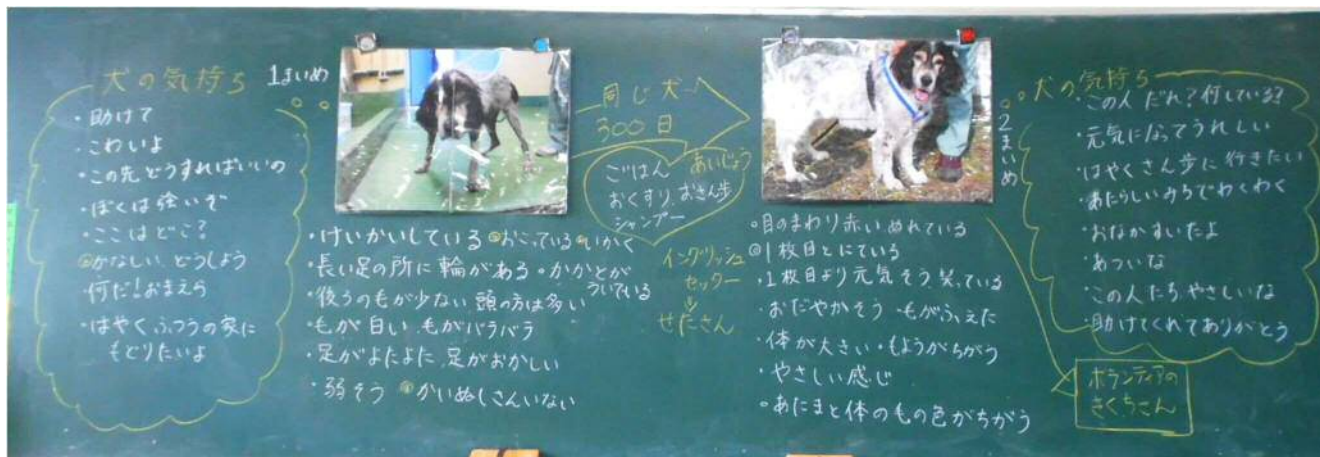 犬の気持ち
1まいめ
・助けて
・こわいよ
・この先どうすればいいの
・ぼくは強いぞ
・ここはどこ?
かなしい、どうしよう
・何だ!おまえら
・はやくふつうの家に
もどりたいよ
・けいかいしている おこっている いかく
・長い足の所に輪がある・かかとが
ういている
・後ろのもが少ない 頭の方は多い
・もが白い もがバラバラ
・足がよたよた 足がおかしい
・弱そう かいぬしさんいない
同じ犬
300日
ごはん あいじょう
おくすり おさん歩
シャンプー
イングリッシュ
セッター
せたさん
・目のまわり赤いぬれている
1枚目とにている
・1枚目より元気そう 笑っている
・おだやかそう ・もがふえた
・体が大きい・もようがちがう
・やさしい感じ
・あたまと体のもの色がちがう
2まいめ
犬の気持ち
・この人だれ?何している?
・元気になってうれしい
・はやくさん歩に行きたい
・あたらしいみちでわくわく
・おなかすいたよ
・あついな
・この人たちやさしいな
・助けてくれてありがとう
ボランティアの
きくちさん